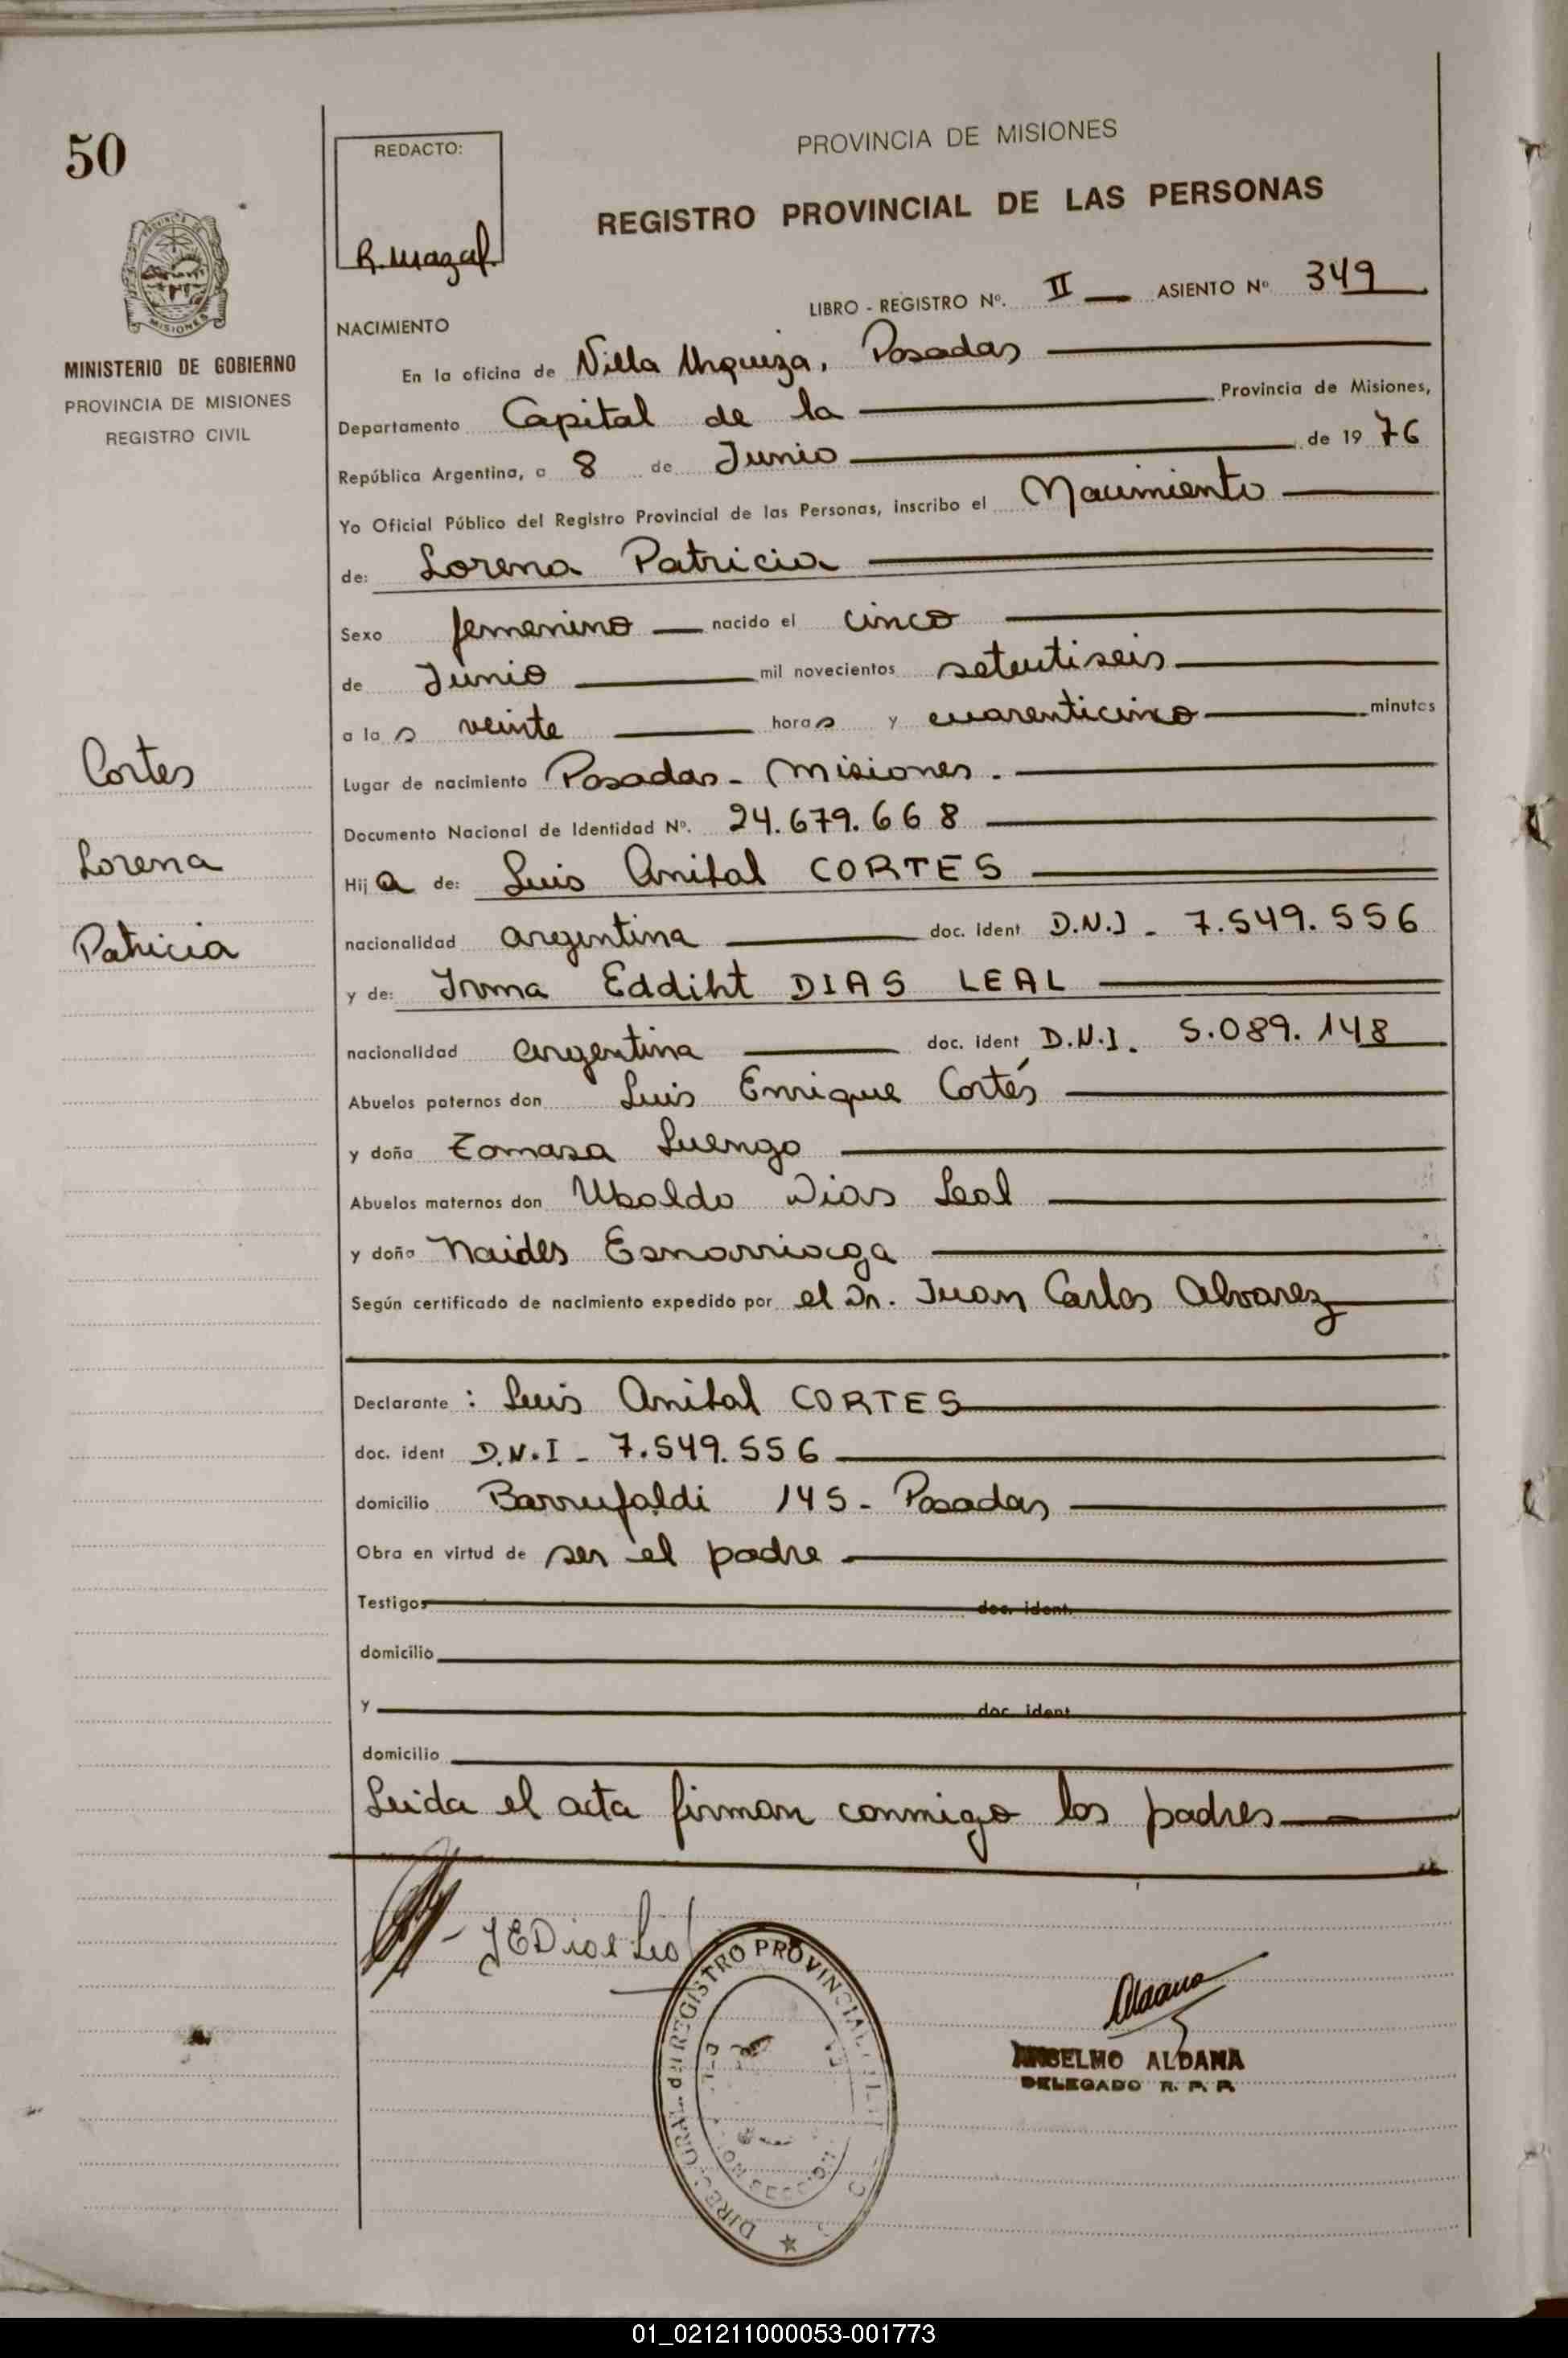 50
PROVINCIA DE MISIONES
REDACTO:
R. Mazal.
REGISTRO PROVINCIAL DE LAS PERSONAS
MISIONES
MINISTERIO DE GOBIERNO
PROVINCIA DE MISIONES
REGISTRO CIVIL
LIBRO - REGISTRO Nº. II ASIENTO Nº 349
NACIMIENTO
En la oficina de Villa Urquiza, Posadas
Departamento Capital de la Provincia de Misiones,
República Argentina, a 8 de Junio de 1976
Yo Oficial Público del Registro Provincial de las Personas, inscribo el Nacimiento
de: Lorena Patricia
Sexo femenino nacido el cinco
de Junio mil novecientos setentiseis
a la s veinte horas y cuarenticinco minutos
Lugar de nacimiento Posadas - Misiones.
Documento Nacional de Identidad Nº. 24.679.668
Hija de: Luis Anibal CORTES
nacionalidad argentina doc. ident D.N.I - 7.549.556
y de: Irma Eddiht DIAS LEAL
nacionalidad argentina doc. ident D.N.I. 5.089.148
Abuelos paternos don Luis Enrique Cortés
y doña Tomasa Luengo
Abuelos maternos don Ubaldo Dias Leal
y doña Naides Esnarriaga
Según certificado de nacimiento expedido por el Dr. Juan Carlos Alvarez
Cortes
Lorena
Patricia
Declarante : Luis Anibal CORTES
doc. ident D.N.I - 7.549.556
domicilio Barrufaldi 145 - Posadas
Obra en virtud de ser el padre
Testigos doc. ident.
domicilio
y doc. ident
domicilio
Leida el acta firman conmigo los padres
I E Dias Leal
DIREC. GRAL. del REGISTRO PROVINCIAL
Aldana
ANSELMO ALDANA
DELEGADO R. P. P.
01_021211000053-001773